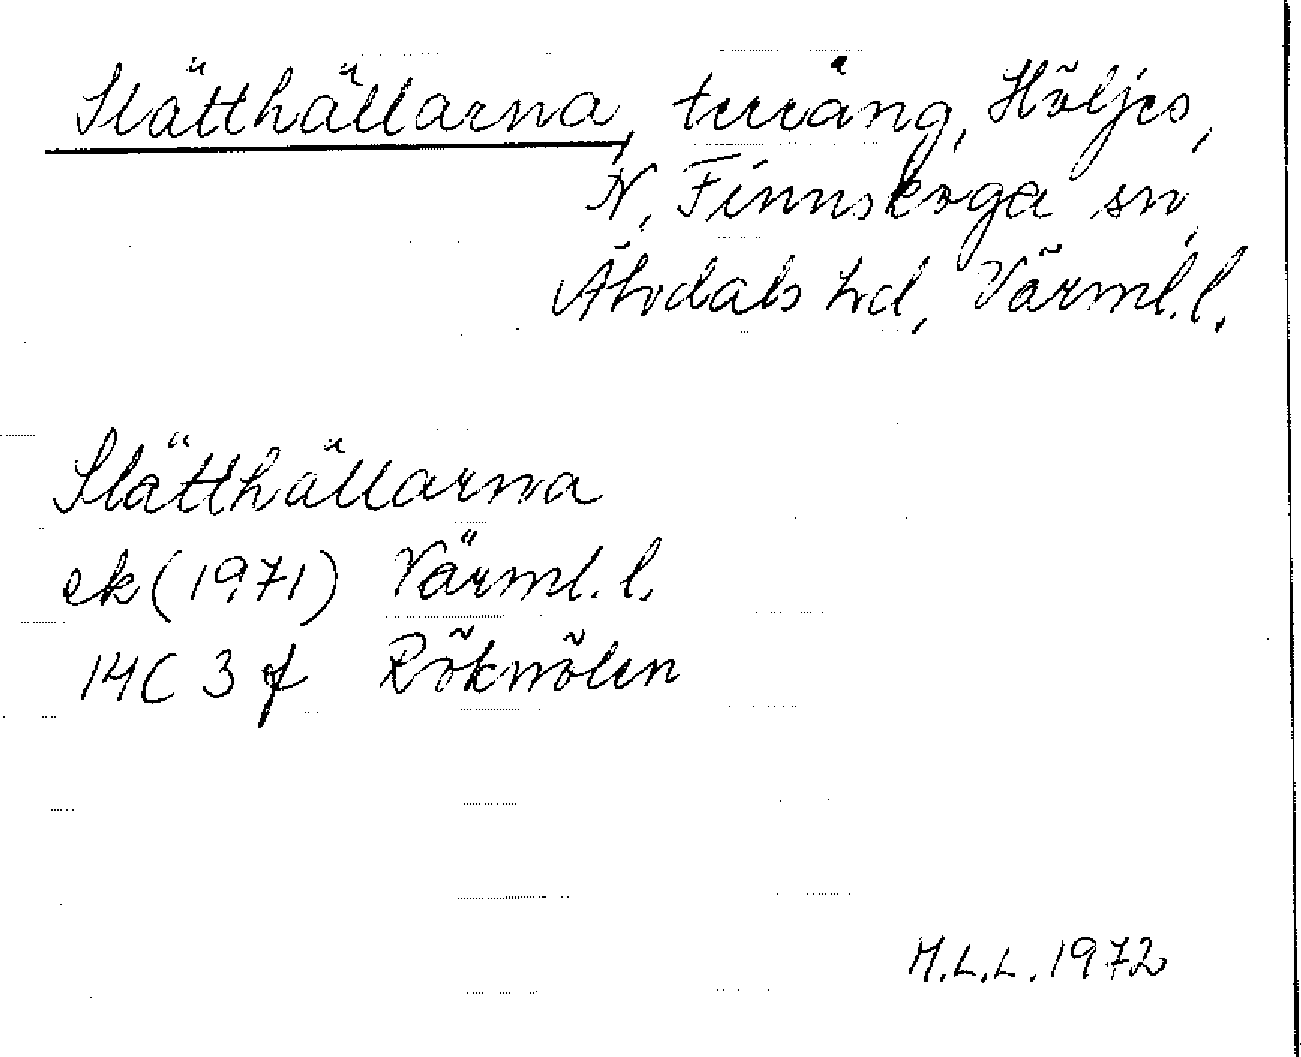 Slätthällarna, terräng, Höljes,
N. Finnskoga sn,
Älvdals hd, Värml. l.
Slätthällarna
ek (1971) Värml. l.
14C 3f Rökmölen
M.L.L. 1972